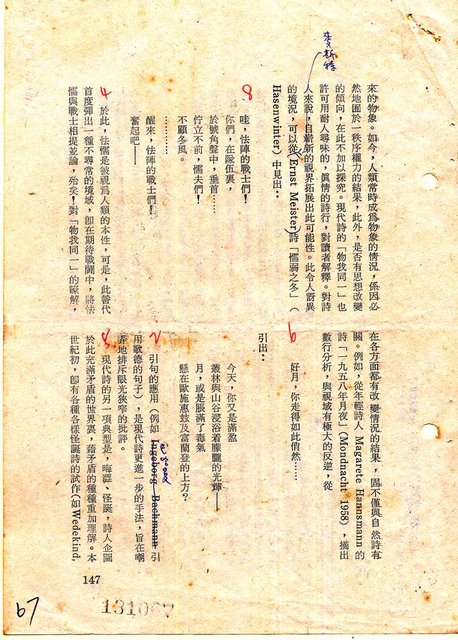 麥斯特
來的物象。如今，人類常時成爲物象的情況，係因必
然地囿於一秩序權力的結果，此外，是否有思想改變
的傾向，在此不加以探究。現代詩的「物我同一」也
許可用耐人尋味的，眞情的詩行，對讀者解釋。對詩
人來說，自嶄新的視界拓展出此可能性。此令人詫異
的境況，可以從(Ernst Meister)詩「懦弱之冬」(
Hasenwinter) 中見出：
8
哇，怯陣的戰士們！
你們，在隊伍裏，
於號角聲中，垂首……
佇立不前，懦夫們！
不顧冬風。
…………
醒來，怯陣的戰士們！
奮起吧！
4
於此，怯懦是被視爲人類的本性，可是，此替代
首度彈出一種不尋常的境域，卽在期待戰鬪中，將怯
懦與戰士相提並論，殆矣！對「物我同一」的歐解，
在各方面都有改變情況的結果，固不僅與自然詩有
關。例如，從年輕詩人 Magarete Hannsmann 的
詩「一九五八年月夜」(Mondnacht 1958)，摘出
數行分析，與視域有極大的反逆，從
6
好月，你走得如此悄然……
引出：
今天，你又是滿盈
叢林與山谷浸浴着朦朧的光輝——
月，或是脹滿了毒氣
懸在歐施惠兹及富蘭登的上方？
2
引句的應用（例如 Ingeborg Bachmann 引
用歌德的句子），是現代詩更進一步的手法，旨在嘲
弄地排斥眼光狹窄的批評。
8
現代詩的另一項典型是，晦澀、怪誕，詩人企圖
於此充滿矛盾的世界裏，藉矛盾的種種重加理解。本
世紀初，卽有各種各樣怪誕詩的試作(如Wedekind,
147
67